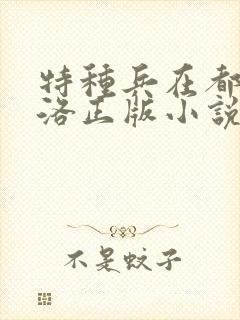 特種兵在都
洛正版小說
不是蚊子